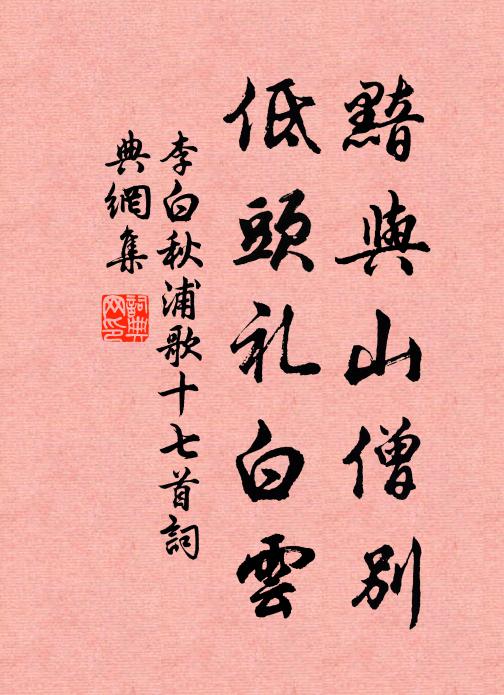 黯與山僧別
低頭礼白雲
李白秋浦歌十七首詞
典網集
詞典網印